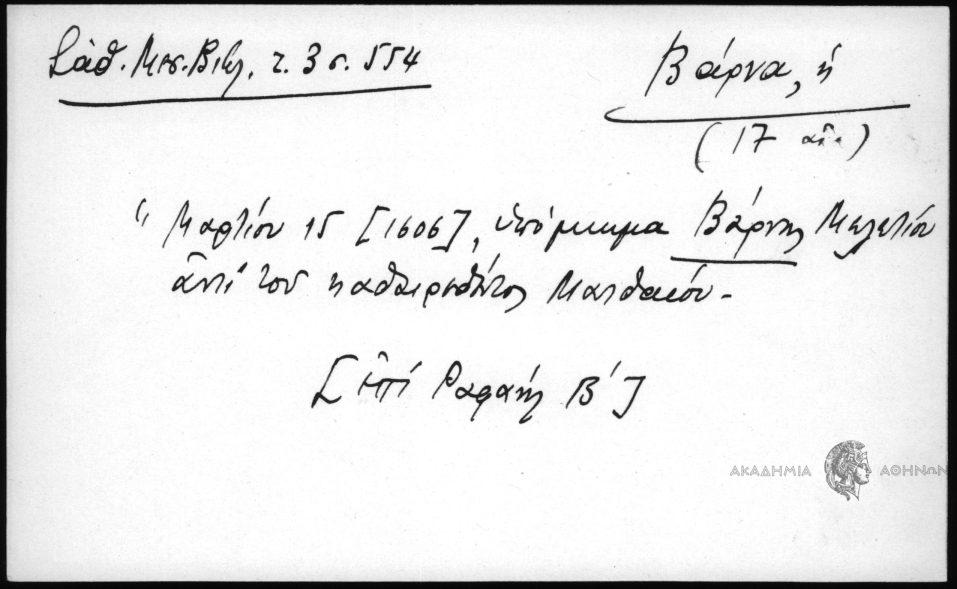 Σάθ. Μεσ. Βιβλ. τ. 3 σ. 554
Βάρνα, ἡ
(17 αἰ.)
“ Μαρτίου 15 [1606], ὑπόμνημα Βάρνης Μελετίου
ἀντὶ τοῦ καθαιρεθέντος Ματθαίου.
[ἐπί Ραφαήλ Β΄]
ΑΚΑΔΗΜΙΑ ΑΘΗΝΩΝ